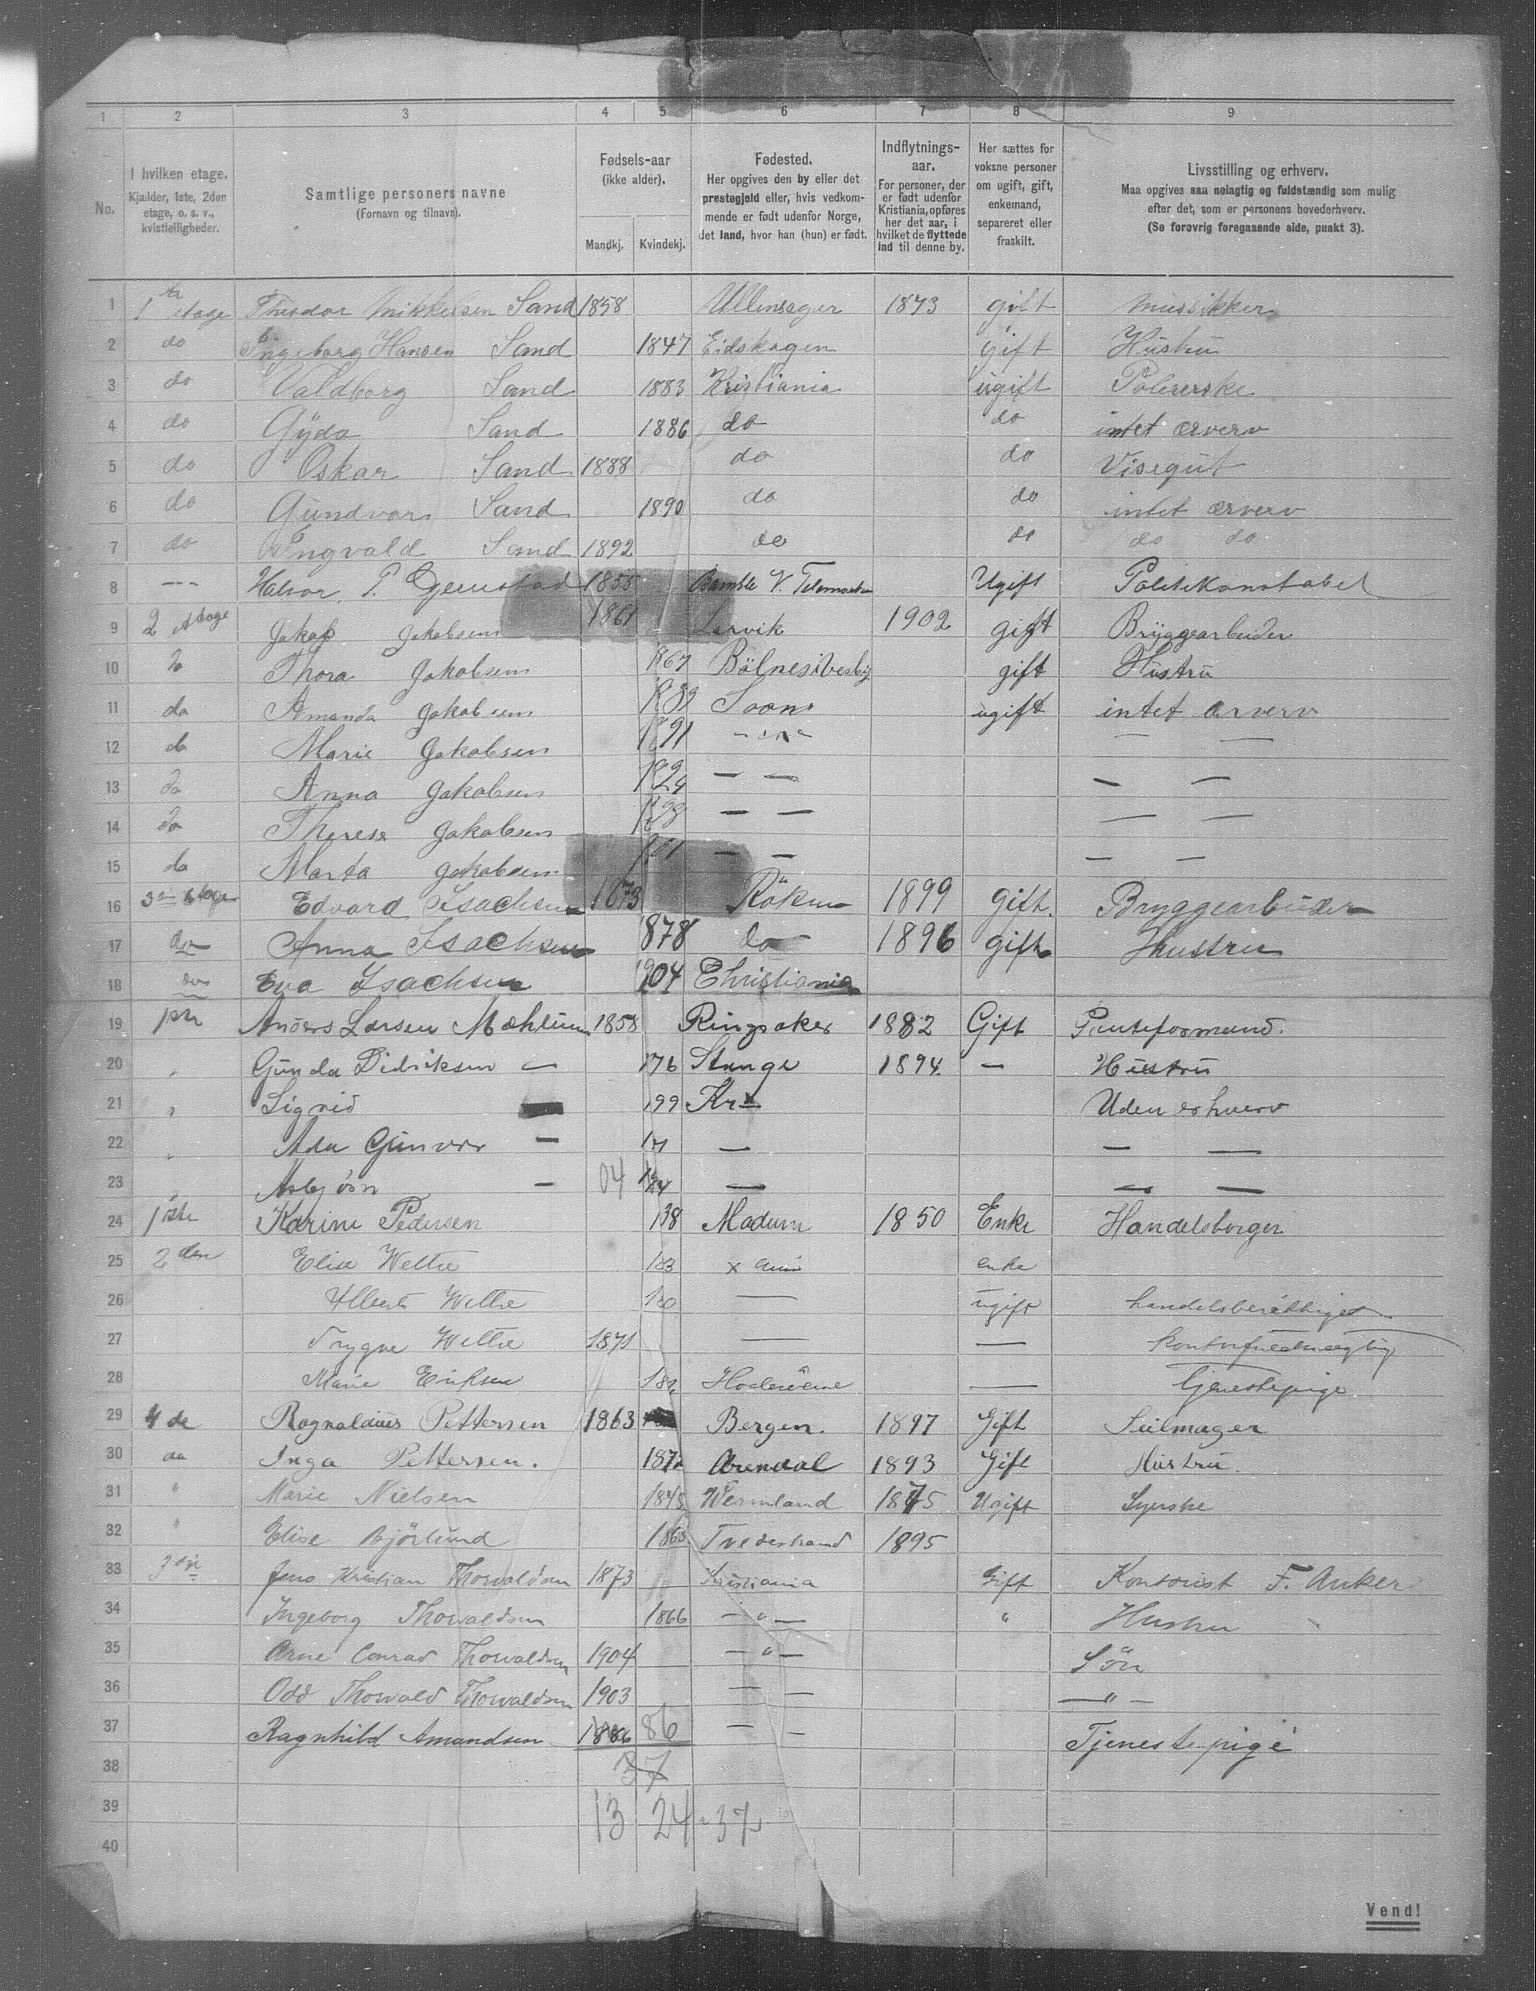 1 2 3 4 5 6 7 8 9
No.
I hvilken etage.
Kjælder, 1ste, 2den
etage, o. s. v.,
kvistleiligheder.
Samtlige personers navne
(Fornavn og tilnavn).
Fødsels-aar
(ikke alder).
Mandkj. Kvindekj.
Fødested.
Her opgives den by eller det
prestegjeld eller, hvis vedkom-
mende er født udenfor Norge,
det land, hvor han (hun) er født.
Indflytnings-
aar.
For personer, der
er født udenfor
Kristiania, opføres
her det aar, i
hvilket de flyttede
ind til denne by.
Her sættes for
voksne personer
om ugift, gift,
enkemand,
separeret eller
fraskilt.
Livsstilling og erhverv.
Maa opgives saa nøiagtig og fuldstændig som mulig
efter det, som er personens hovederhverv.
(Se forøvrig foregaaende side, punkt 3).
1 1 etage Theodor Mikkelsen Sand 1858 Ullensager 1873 gift Mussikker
2 do Ingeborg Hansen Sand 1847 Eidskogen gift Hustru
3 do Valdborg Sand 1883 Kristiania ugift Polererske
4 do Gyda Sand 1886 do do intet ærverv
5 do Oskar Sand 1888 do do Visegut
6 do Gundvor Sand 1890 do do intet ærverv
7 do Ingvald Sand 1892 do do do do
8 Halvor P. 1855 Bamble V. Telemarken Ugift Politikonstabel
9 2 Etage Jakob Jakobsen 1861 Larvik 1902 gift Bryggearbeider
10 do Thora Jakobsen 1867 gift Hustru
11 do Amanda Jakobsen 1889 Soon ugift intet ærverv
12 do Marie Jakobsen 1891 — — — —
13 do Anna Jakobsen — — — —
14 do Therese Jakobsen — — — —
15 do Marta Jakobsen — — — —
16 3 Etage Edvard Isachsen 1873 Röken 1899 gift. Bryggearbeider
17 do Anna Isachsen 1878 do 1896 gift Hustru
18 do Eva Isachsen 1904 Christiania
19 1ste Anders Larsen Mæhlum 1858 Ringsaker 1882 Gift
20 " Gunda Didriksen — 176 Stange 1894. — Hustru
21 " Sigrid — 199 Kr Uden erhverv
22 " Ada Gunvor — — — —
23 " Asbjörn — 04 — — —
24 1ste Karine Pedersen 138 Modum 1850 Enke Handelsborger
25 2den Elise Wettre 183 enke
26 Wettre — ugift handelsberettiget
27 Trygve Wettre 1871 — —
28 Marie Eriksen — Tjenestepige
29 4de Ragnaldius Pettersen 1863 Bergen. 1897 Gift Seilmager
30 do Inga Pettersen. Arendal 1893 Gift Hustru.
31 " Marie Nielsen 1848 Wermland 1875 Ugift Syerske
32 " Elise Björlund 1863 Tvedestrand 1895
33 3die Jens Kristian Thorvaldsen 1873 Kristiania Gift Kontorist F. Anker
34 Ingeborg Thorvaldsen 1866 — " — " Hustru
35 Arne Conrad Thorvaldsen 1904 — " — Sön
36 Odd Thorvald Thorvaldsen 1903 — — — " —
37 Ragnhild Amandsen 1886 86 — — Tjenestepige
38 37
39 13 24 = 37
40
Vend!